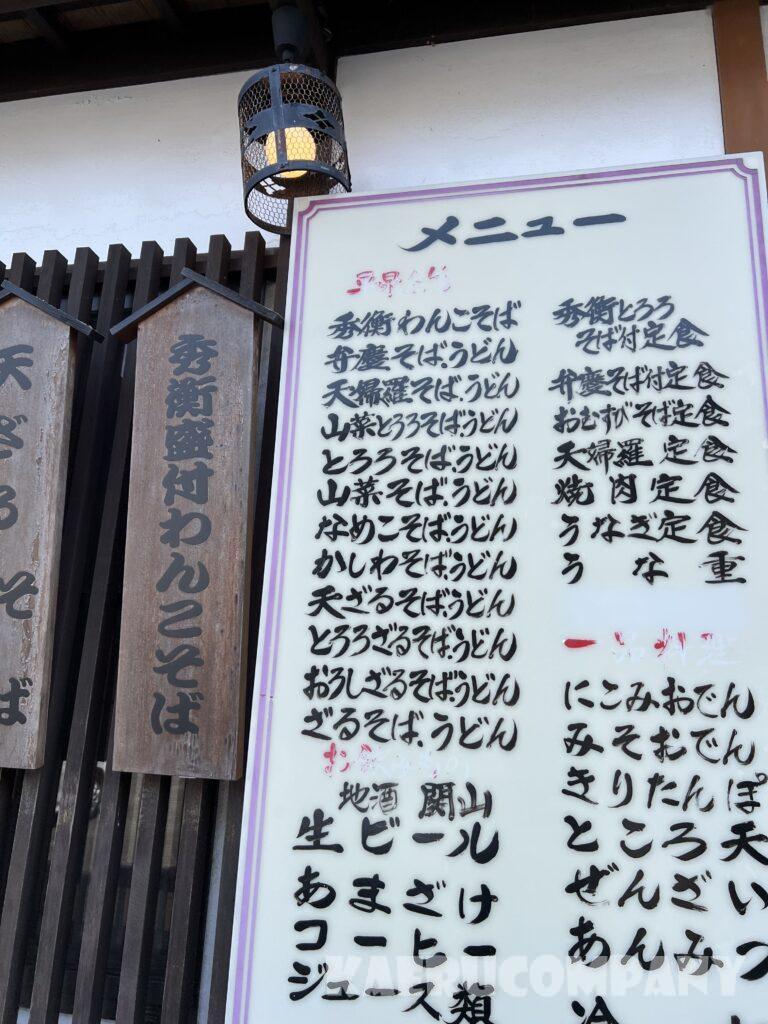 天ざるそば
秀衡盛付わんこそば
メニュー
秀衡わんこそば
弁慶そば.うどん
天婦羅そば.うどん
山菜とろろそば.うどん
とろろそば.うどん
山菜そば.うどん
なめこそば.うどん
かしわそば.うどん
天ざるそば.うどん
とろろざるそば.うどん
おろしざるそば.うどん
ざるそば.うどん
地酒 関山
生ビール
あまざけ
コーヒー
ジュース類
秀衡とろろ
そば付定食
弁慶そば付定食
おむすびそば定食
天婦羅定食
焼肉定食
うなぎ定食
うな重
一品料理
にこみおでん
みそおでん
きりたんぽ
ところ天
ぜんざい
あんみつ
冷
KAERUCOMPANY